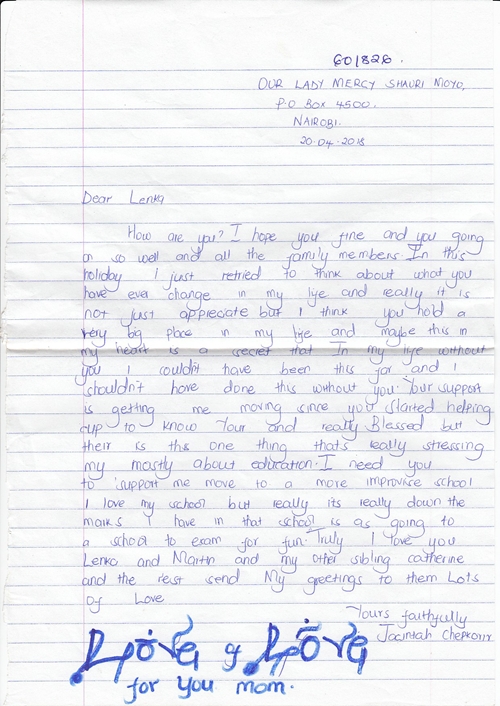 601826.
OUR LADY MERCY SHAURI MOYO,
P.O BOX 4500.
NAIROBI.
20.04.2018
Dear Lenka
How are you? I hope you fine and you going
on so well and all the family members. In this
holiday I just retried to think about what you
have ever change in my life and really it is
not just appreciate but I think you hold a
very big place in my life and maybe this in
my heart is a secret that In my life without
you I couldn't have been this far and I
shouldn't have done this without you. Your support
is getting me moving since you started helping
up to know Your and really Blessed but
their is this one thing thats really stressing
my mostly about education. I need you
to support me move to a more improvise school
I love my school but really its really down the
marks I have in that school is as going to
a school to exam for fun. Truly I love you
Lenka and Martin and my other sibling catherine
and the rest send My greetings to them Lots
Of Love
Yours faithfully
Jacintah Chepkorir
Love of Love
for you mom.